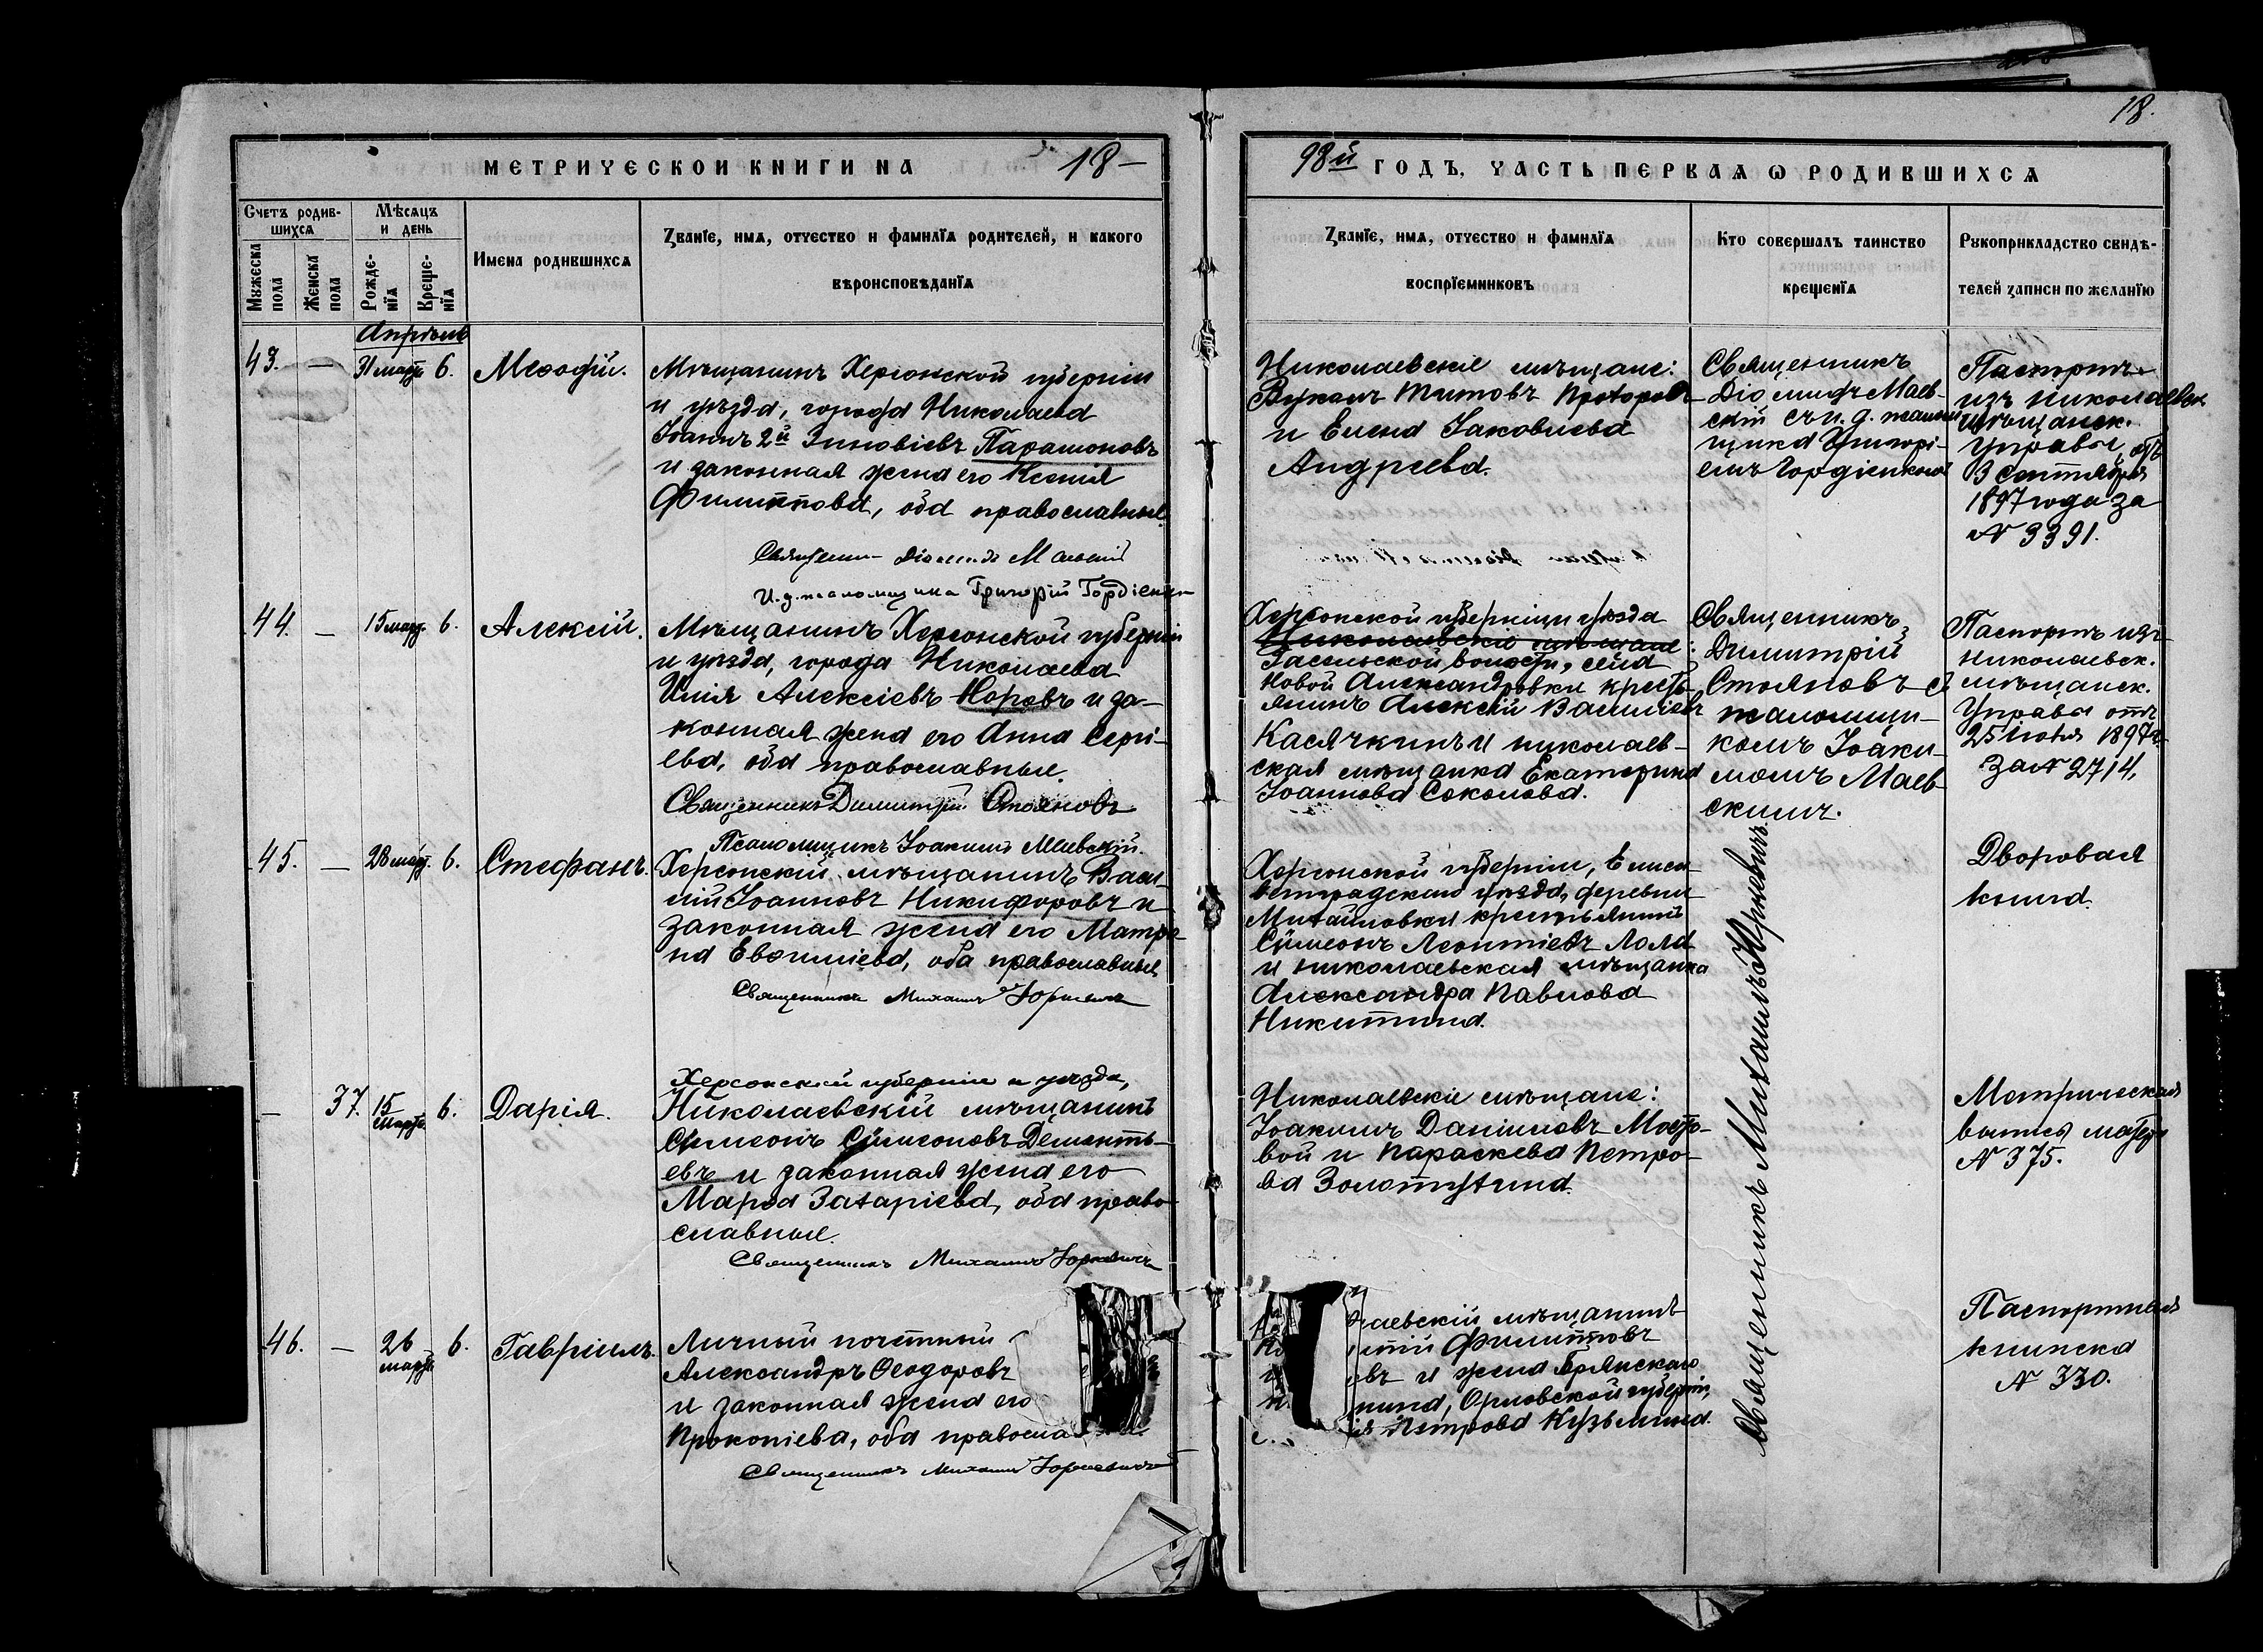 18.
МЕТРИЧЕСКОЙ КНИГИ НА 18—
98й ГОДЪ, ЧАСТЬ ПЕРВАЯ Ѡ РОДИВШИХСЯ
Счетъ родив-
шихся
Мѣсяцъ
и день
Мужеска пола
Женска пола
Рожде-
нїя
Креще-
нїя
Имена родившихся
Званїе, имя, отчество и фамилїя родителей, и какого
вѣроисповѣданїя
Званїе, имя, отчество и фамилїя
воспрїемниковъ
Кто совершалъ таинство
крещенїя
Рукоприкладство свидѣ-
телей записи по желанїю
Апрѣль
43. — 31 март. 6. Меѳодій.
Мѣщанинъ Херсонской губерніи
и уѣзда, города Николаева
Іоаннъ 2й Зиновіевъ Парамоновъ
и законная жена его Ксенія
Филиппова, оба православные.
Священникъ Діомидъ Маевскій
И. д. псаломщика Григорій Гордіенко
Николаевскіе мѣщане:
Вуколъ Титовъ Протопоповъ
и Елена Іаковлева
Андреева.
Священникъ
Діомидъ Маев-
скій съ и. д. псалом-
щика Григорі-
емъ Гордіенкомъ
Паспортъ
изъ Николаевск.
мѣщанск.
управы, отъ
3 сентября
1897 года за
№ 3391.
44. — 15 март. 6. Алексій.
Мѣщанинъ Херсонской губерніи
и уѣзда, города Николаева
Илія Алексіевъ Норовъ и за-
конная жена его Анна Сергі-
ева, оба православные.
Священникъ Димитрій Стояновъ
Псаломщикъ Іоакимъ Маевскій.
Херсонской губерніи уѣзда
Николаевскіе мѣщане:
Засельской волости, села
Новой Александровки кресть-
янинъ Алексій Василіевъ
Касячкинъ и николаев-
ская мѣщанка Екатерина
Іоаннова Соколова.
Священникъ
Димитрій
Стояновъ съ
псаломщи-
комъ Іоаки-
момъ Маев-
скимъ.
Паспортъ изъ
Николаевск.
мѣщанск.
Управы отъ
25 Іюня 1897 г.
за № 2714.
45. — 28 март. 6. Стефанъ.
Херсонскій мѣщанинъ Васи-
лій Іоанновъ Никифоровъ и
законная жена его Матро-
на Евѳиміева, оба православные
Священникъ Михаилъ Юркевичъ
Херсонской губерніи, Елиса-
ветградскаго уѣзда, деревни
Михайловки крестьянинъ
Сѵмеонъ Леонтіевъ Лола
и николаевская мѣщанка
Александра Павлова
Никитина.
Священникъ Михаилъ Юркевичъ
Дворовая
книга.
— 37. 15 март. 6. Дарія.
Херсонской губерніи и уѣзда,
Николаевскій мѣщанинъ
Сѵмеонъ Сѵмеоновъ Дементь-
евъ и законная жена его
Марѳа Захаріева, оба право-
славные.
Священникъ Михаилъ Юркевичъ
Николаевскіе мѣщане:
Іоакимъ Даніиловъ Мосто-
вой и Параскева Петро-
ва Золотухина.
Метрическая
выпись матери
№ 375.
46. — 26 март. 6. Гавріилъ.
Личный почетный
Александръ Ѳеодоровъ
и законная жена его
Прокопіева, оба правосла
Священникъ Михаилъ Юркевичъ
лаевскій мѣщанинъ
нтій Филипповъ
евъ и жена Брянскаго
нина, Орловской губерніи,
ія Петрова Кузьмина.
Паспортная
книжка
№ 330.